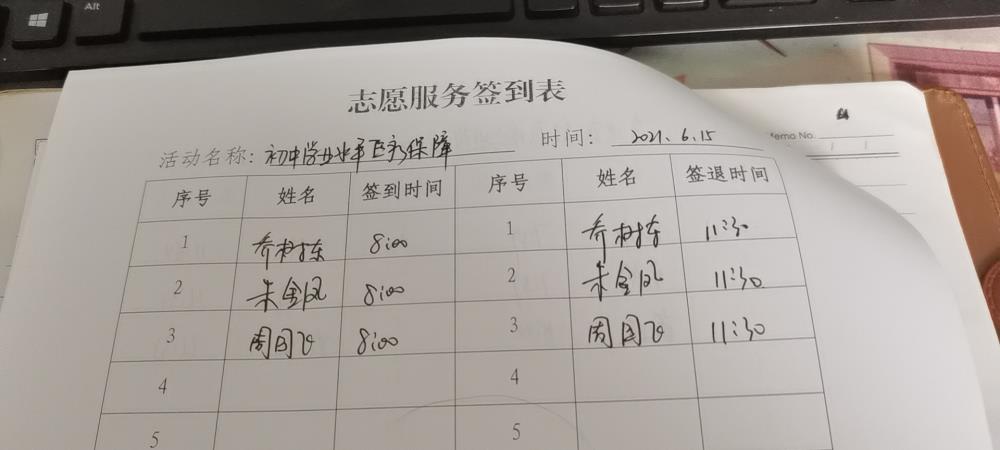 Alt
志愿服务签到表
活动名称: 初中学业水平医疗保障 时间: 2021.6.15
Memo No.
序号 姓名 签到时间 序号 姓名 签退时间
1 乔树栋 8:00 1 乔树栋 11:30
2 朱金凤 8:00 2 朱金凤 11:30
3 周国飞 8:00 3 周国飞 11:30
4 4
5 5